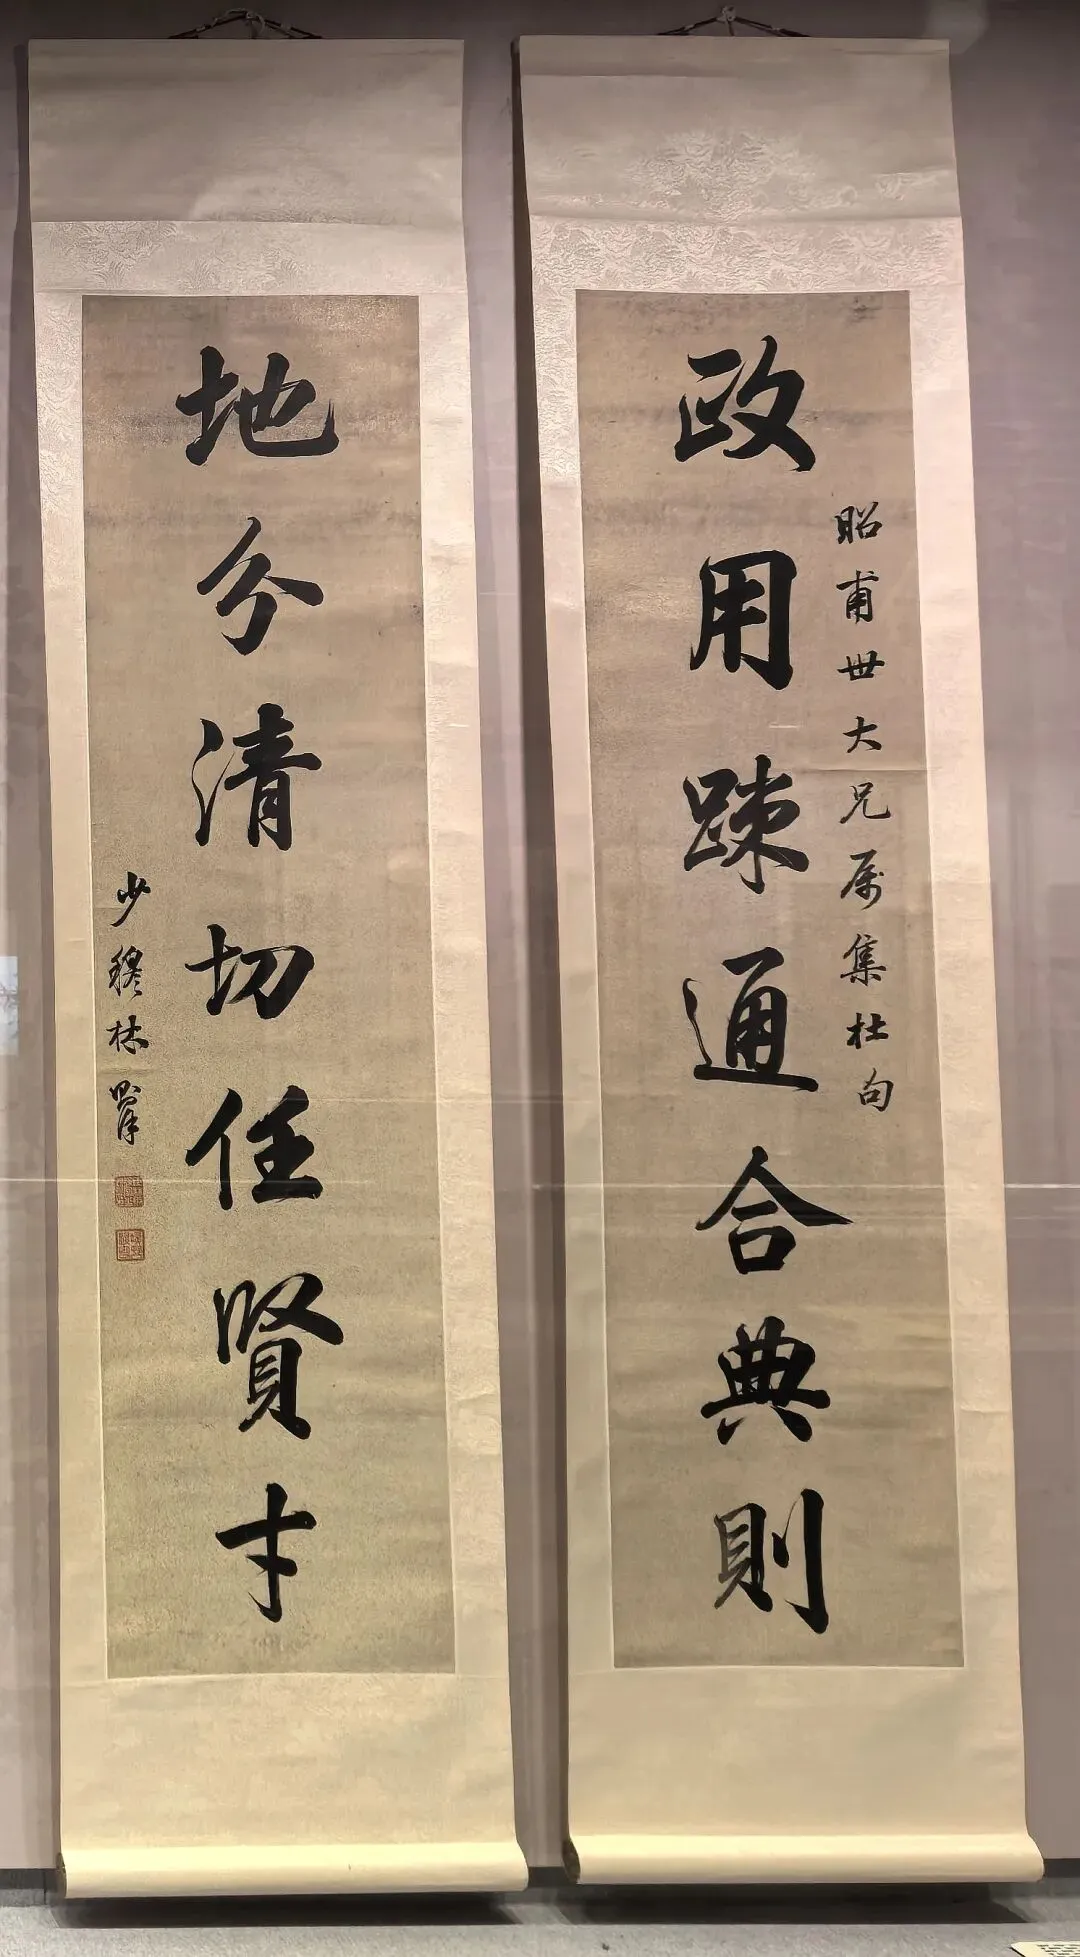 政用疎通合典則
昭甫世大兄属集杜句
地分清切任賢才
少穆林